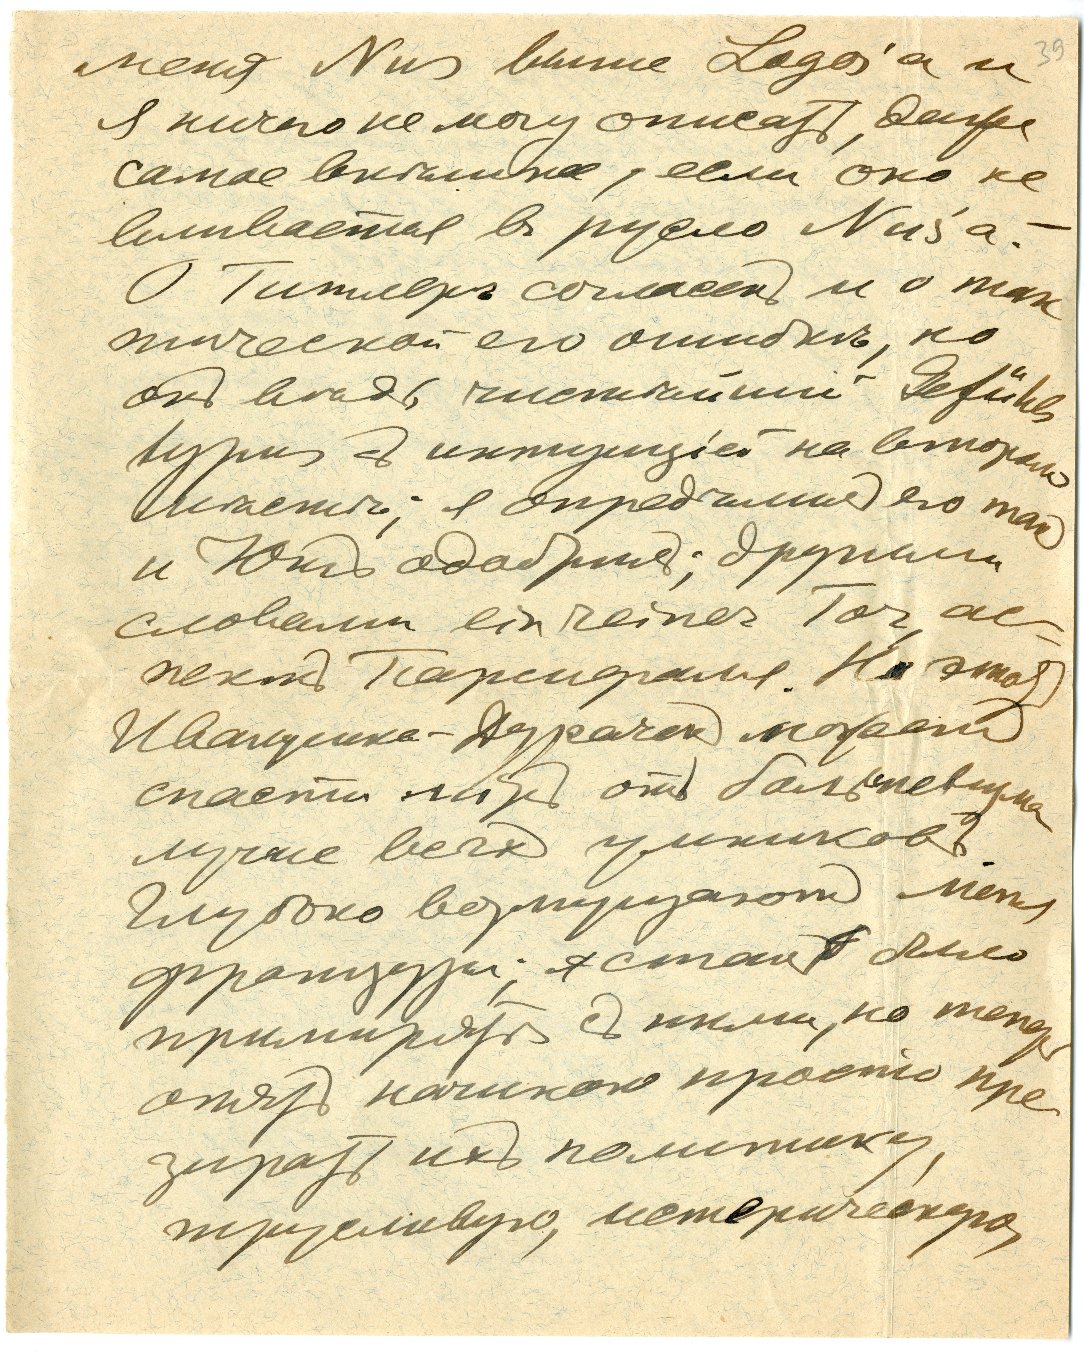 39
меня Nus выше Logos'а и
я ничего не могу описать, даже
самое внѣшнее, если оно не
вливается въ русло Nus'а.–
О Гитлерѣ согласенъ и о так
тической его ошибкѣ, но
онъ вѣдь чистѣйшій Gefühls
typus съ интуиціей на второмъ
мѣстѣ; я опредѣлилъ его такъ
и Юнгъ одобрилъ; другими
словами ein reiner Tor, ас–
пектъ Парсифаля. Но этотъ
Иванушка-Дурачокъ можетъ
спасти міръ отъ большевизма
лучше всѣхъ умниковъ.
Глубоко возмущаютъ меня
французы; я сталъ было
примирять съ ними, но теперь
опять начинаю просто пре
зирать ихъ политику,
трусливую, истерическую,